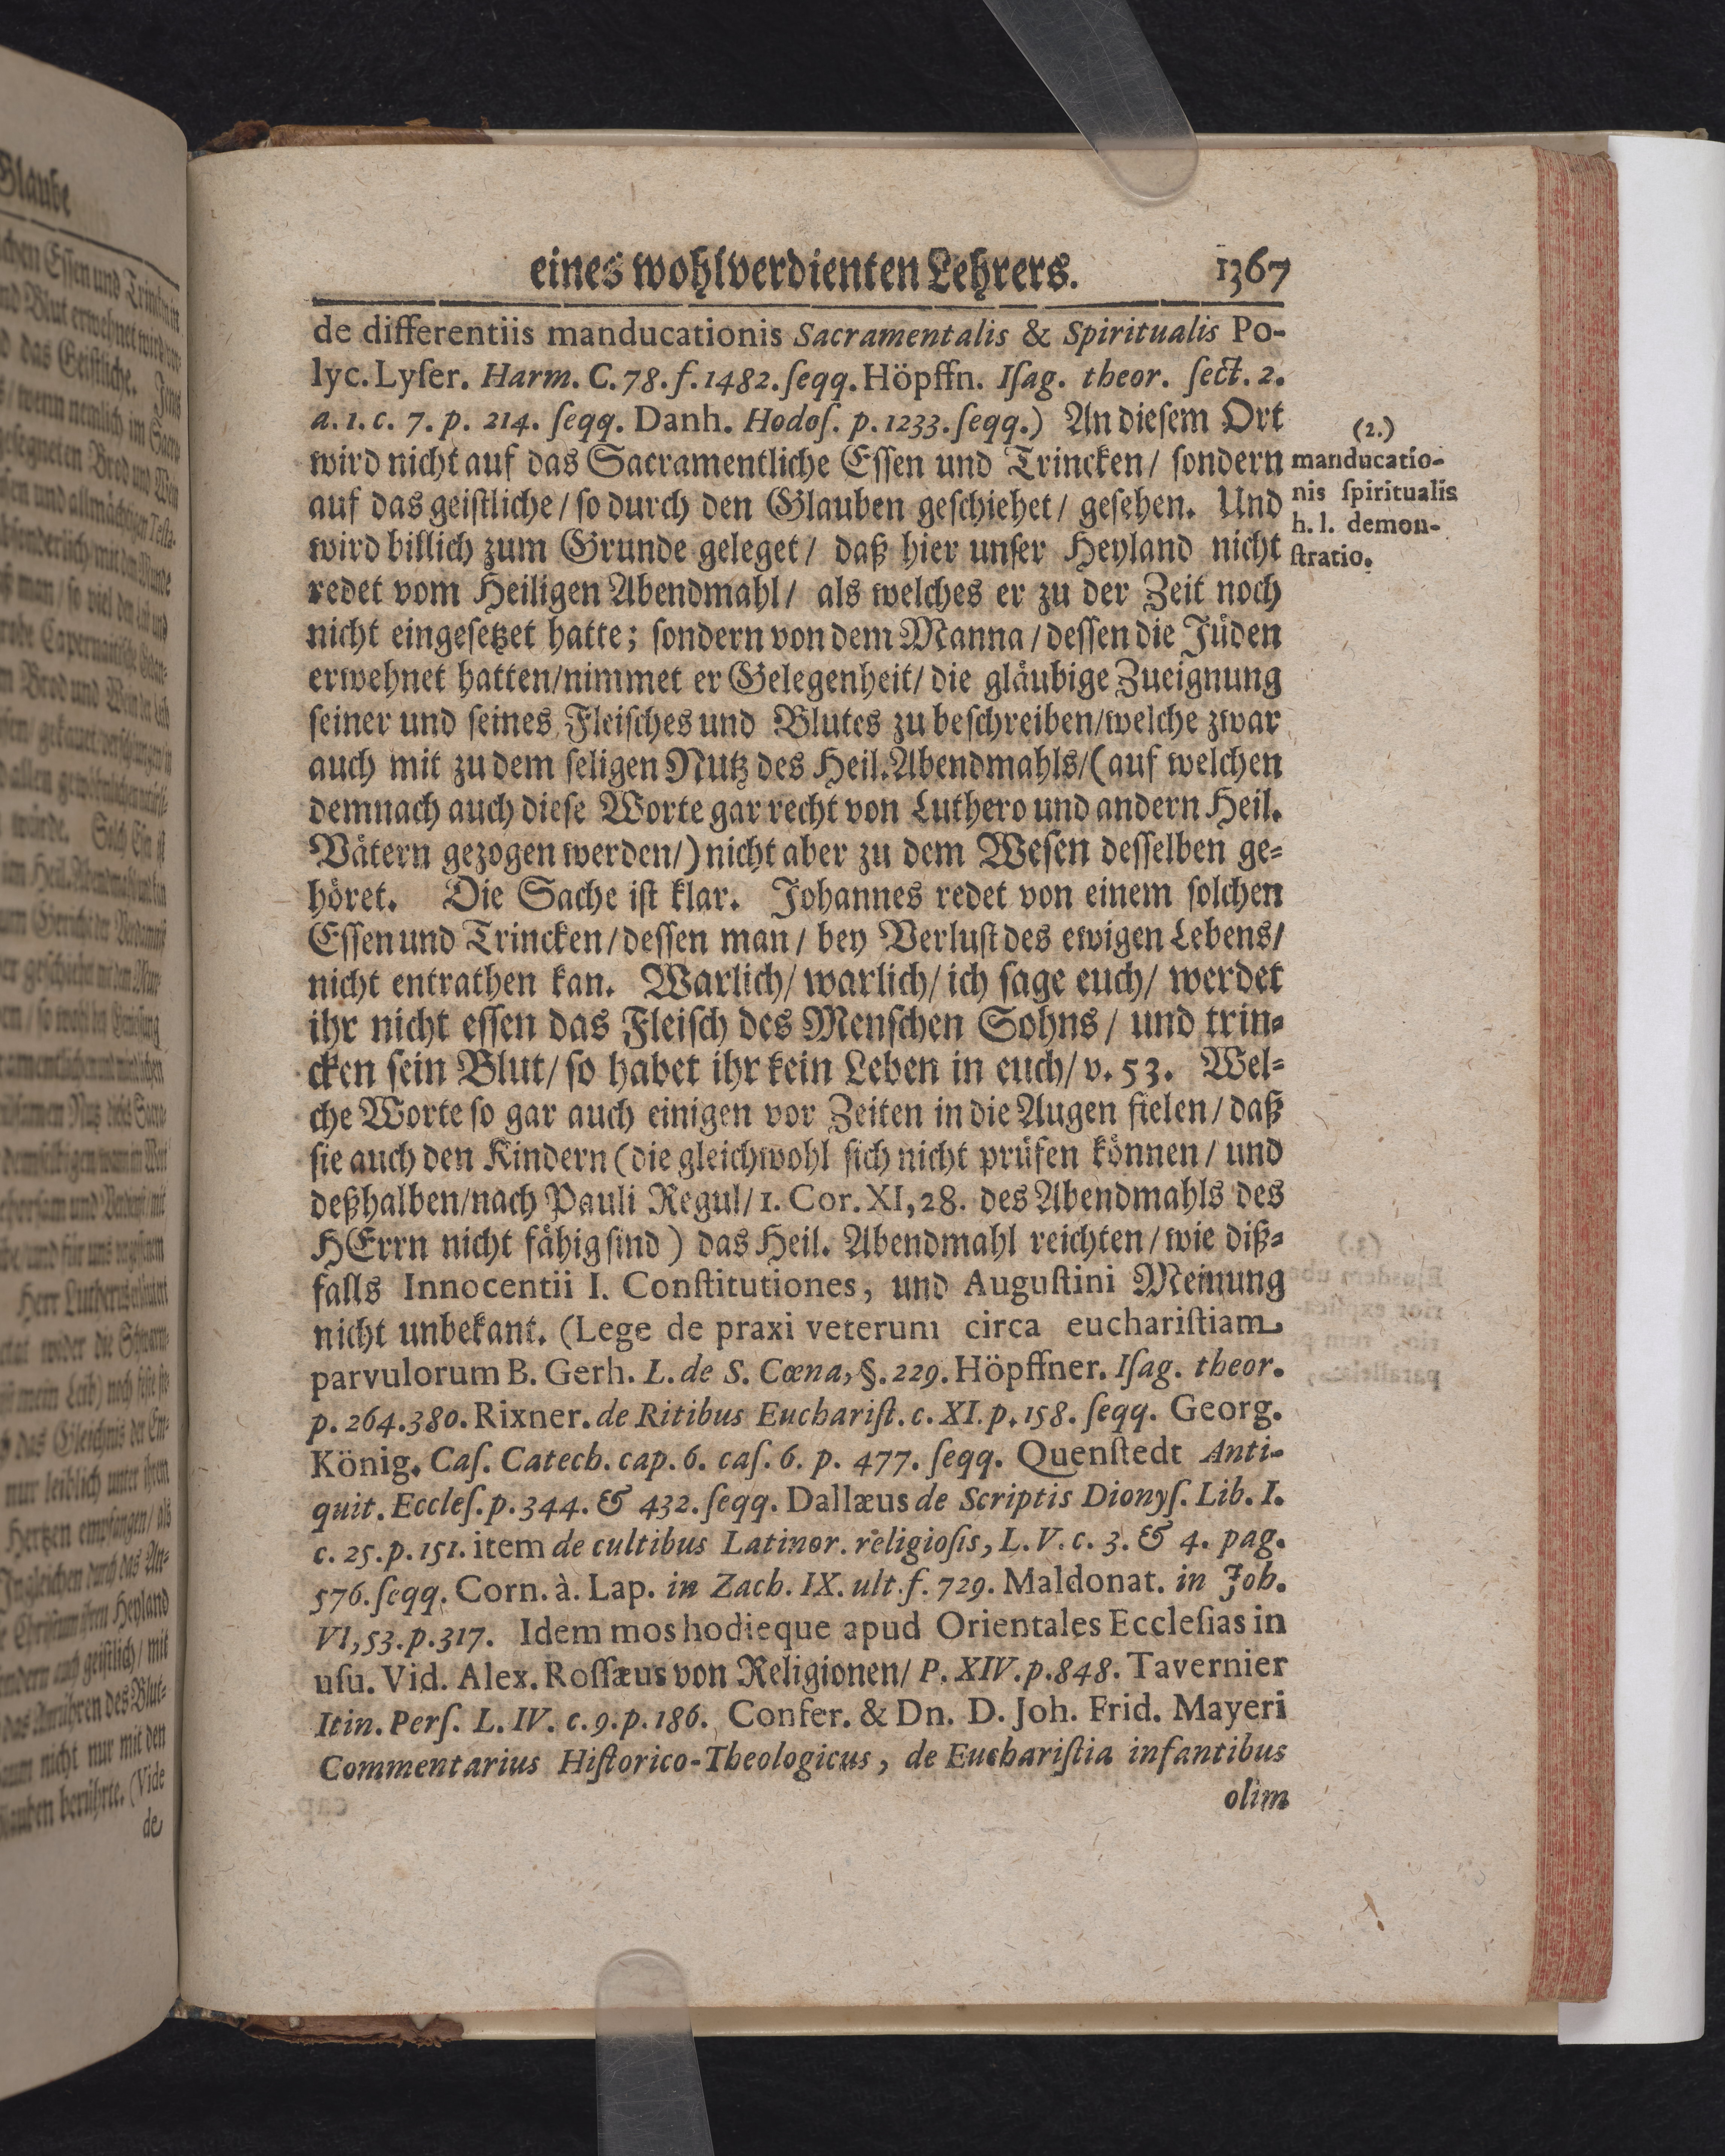 eines wohlverdienten Lehrers. 1367
de differentiis manducationis Sacramentalis & Spiritualis Po-
lyc. Lyſer. Harm. C. 78. f. 1482. ſeqq. Höpffn. Iſag. theor. ſect. 2.
a. 1. c. 7. p. 214. ſeqq. Danh. Hodoſ. p. 1233. ſeqq.) An dieſem Ort
wird nicht auf das Sacramentliche Eſſen und Trincken / ſondern
auf das geiſtliche / ſo durch den Glauben geſchiehet / geſehen. Und
wird billich zum Grunde geleget / daß hier unſer Heyland nicht
redet vom Heiligen Abendmahl / als welches er zu der Zeit noch
nicht eingeſetzet hatte; ſondern von dem Manna / deſſen die Jüden
erwehnet hatten / nimmet er Gelegenheit / die gläubige Zueignung
ſeiner und ſeines Fleiſches und Blutes zu beſchreiben / welche zwar
auch mit zu dem ſeligen Nutz des Heil. Abendmahls / (auf welchen
demnach auch dieſe Worte gar recht von Luthero und andern Heil.
Vätern gezogen werden /) nicht aber zu dem Weſen deſſelben ge-
höret. Die Sache iſt klar. Johannes redet von einem ſolchen
Eſſen und Trincken / deſſen man / bey Verluſt des ewigen Lebens /
nicht entrathen kan. Warlich / warlich / ich ſage euch / werdet
ihr nicht eſſen das Fleiſch des Menſchen Sohns / und trin-
cken ſein Blut / ſo habet ihr kein Leben in euch / v. 53. Wel-
che Worte ſo gar auch einigen vor Zeiten in die Augen fielen / daß
ſie auch den Kindern (die gleichwohl ſich nicht prüfen können / und
deßhalben / nach Pauli Regul / 1. Cor. XI, 28. des Abendmahls des
HErrn nicht fähig ſind) das Heil. Abendmahl reichten / wie diß-
falls Innocentii I. Conſtitutiones, und Auguſtini Meinung
nicht unbekant. (Lege de praxi veterum circa euchariſtiam
parvulorum B. Gerh. L. de S. Cœna, §. 229. Höpffner. Iſag. theor.
p. 264. 380. Rixner. de Ritibus Euchariſt. c. XI. p. 158. ſeqq. Georg.
König. Caſ. Catech. cap. 6. caſ. 6. p. 477. ſeqq. Quenſtedt Anti-
quit. Eccleſ. p. 344. & 432. ſeqq. Dallæus de Scriptis Dionyſ. Lib. I.
c. 25. p. 151. item de cultibus Latinor. religioſis, L. V. c. 3. & 4. pag.
576. ſeqq. Corn. à. Lap. in Zach. IX. ult. f. 729. Maldonat. in Joh.
VI, 53. p. 317. Idem mos hodieque apud Orientales Eccleſias in
uſu. Vid. Alex. Roſſæus von Religionen / P. XIV. p. 848. Tavernier
Itin. Perſ. L. IV. c. 9. p. 186. Confer. & Dn. D. Joh. Frid. Mayeri
Commentarius Hiſtorico-Theologicus, de Euchariſtia infantibus
olim
(2.)
manducatio-
nis ſpiritualis
h. l. demon-
ſtratio.